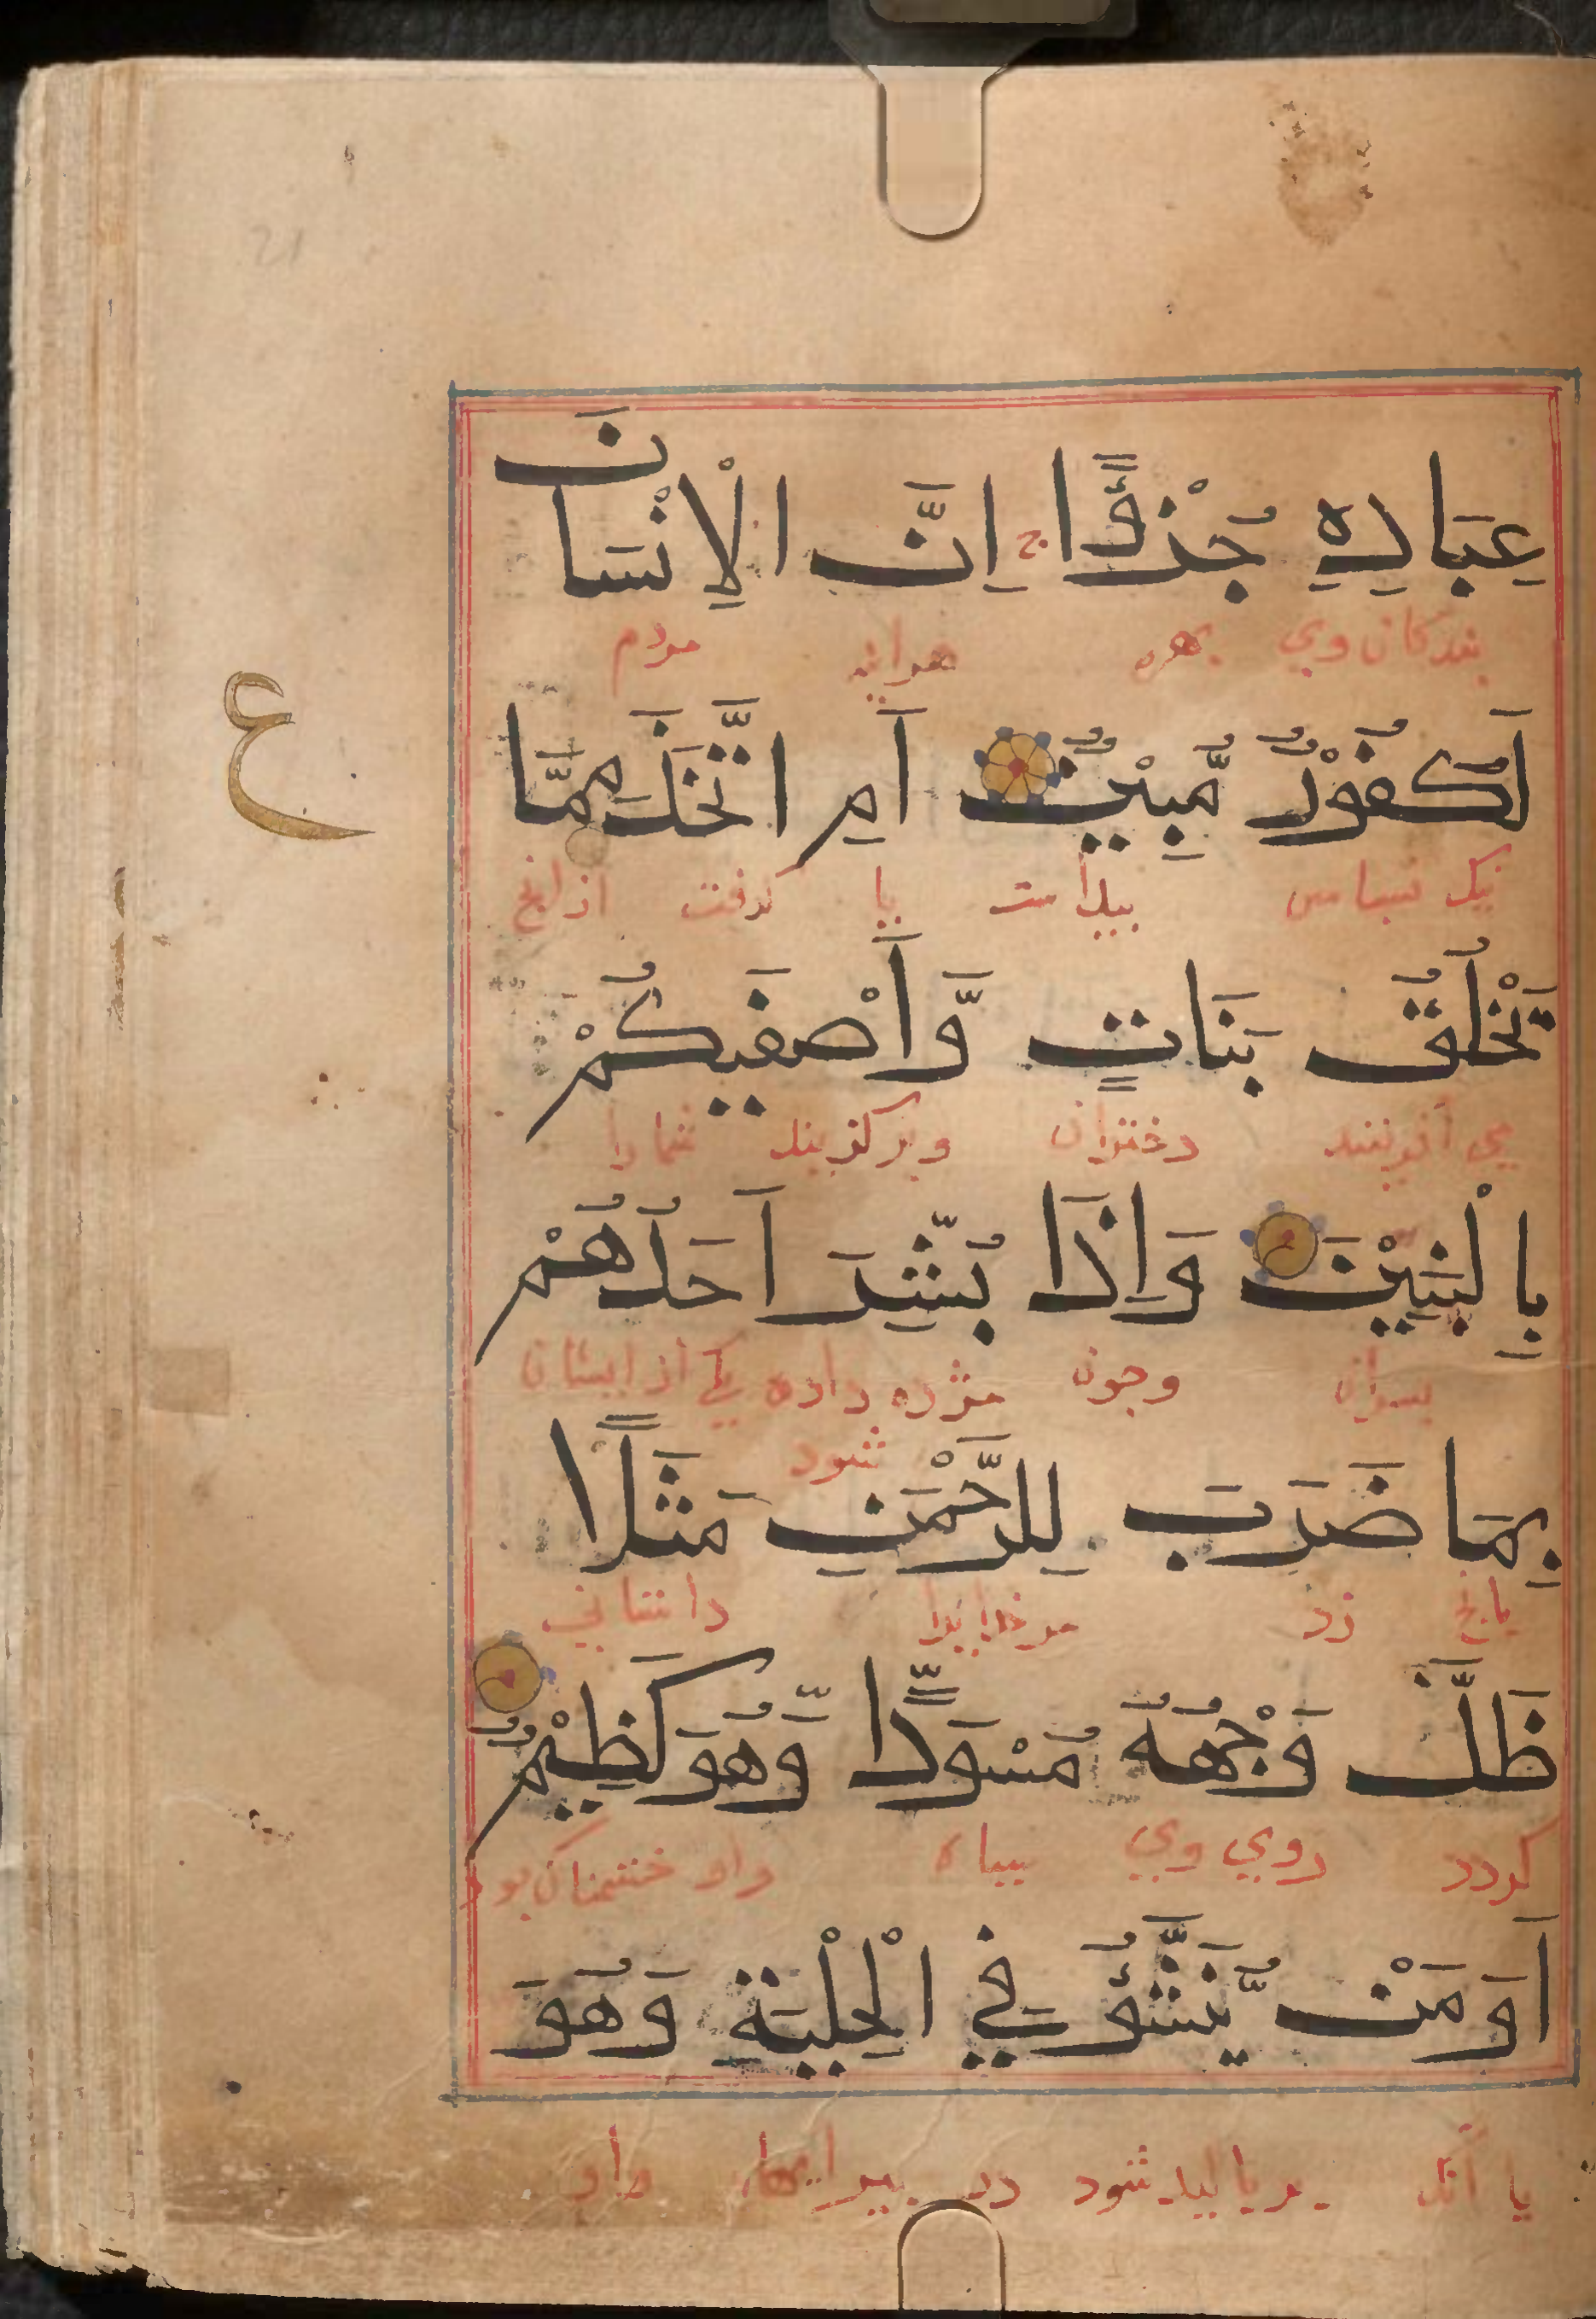 عِبَادِهٖ جُزْءًا ج اِنَّ الْاِنْسَانَ
بندکان وی بهره مردم
لَكَفُوْرٌ مُّبِيْنٌ اَمِ اتَّخَذَ مِمَّا
ع
نیک نسپاس پیداست یا کرفت ازانچ
يَخْلُقُ بَنَاتٍ وَّاَصْفٰيكُمْ
می آفرینند دختران وبرکزیند شمارا
بِالْبَنِيْنَ وَاِذَا بُشِّرَ اَحَدُهُمْ
بسران وچون مژده داده یکی از ایشان
شود
بِمَا ضَرَبَ لِلرَّحْمٰنِ مَثَلًا
بانچ زد مرخدایرا داستانی
ظَلَّ وَجْهُهٗ مُسْوَدًّا وَّهُوَ كَظِيْمٌ
کردد روی وی سیاه واو خشمناک بو
اَوَمَنْ يُّنَشَّؤُا فِي الْحِلْيَةِ وَهُوَ
یا آنک بربالید شود در پیرایها واو